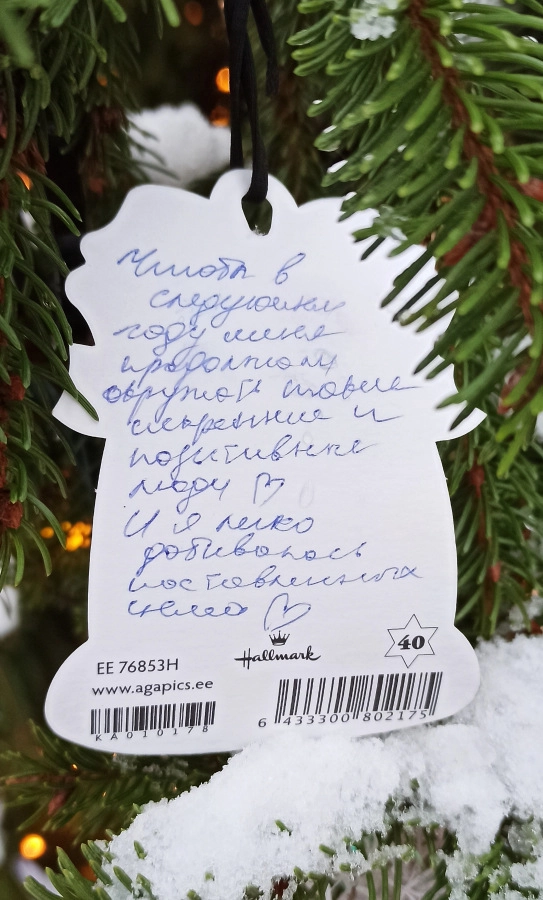 Чтобы в
следующем
году меня
продолжали
окружать такие
искренние и
позитивные
люди ♡
И я легко
добивалась
поставленных
целей ♡
40
Hallmark
EE 76853H
www.agapics.ee
KA010178
6 433300 802175